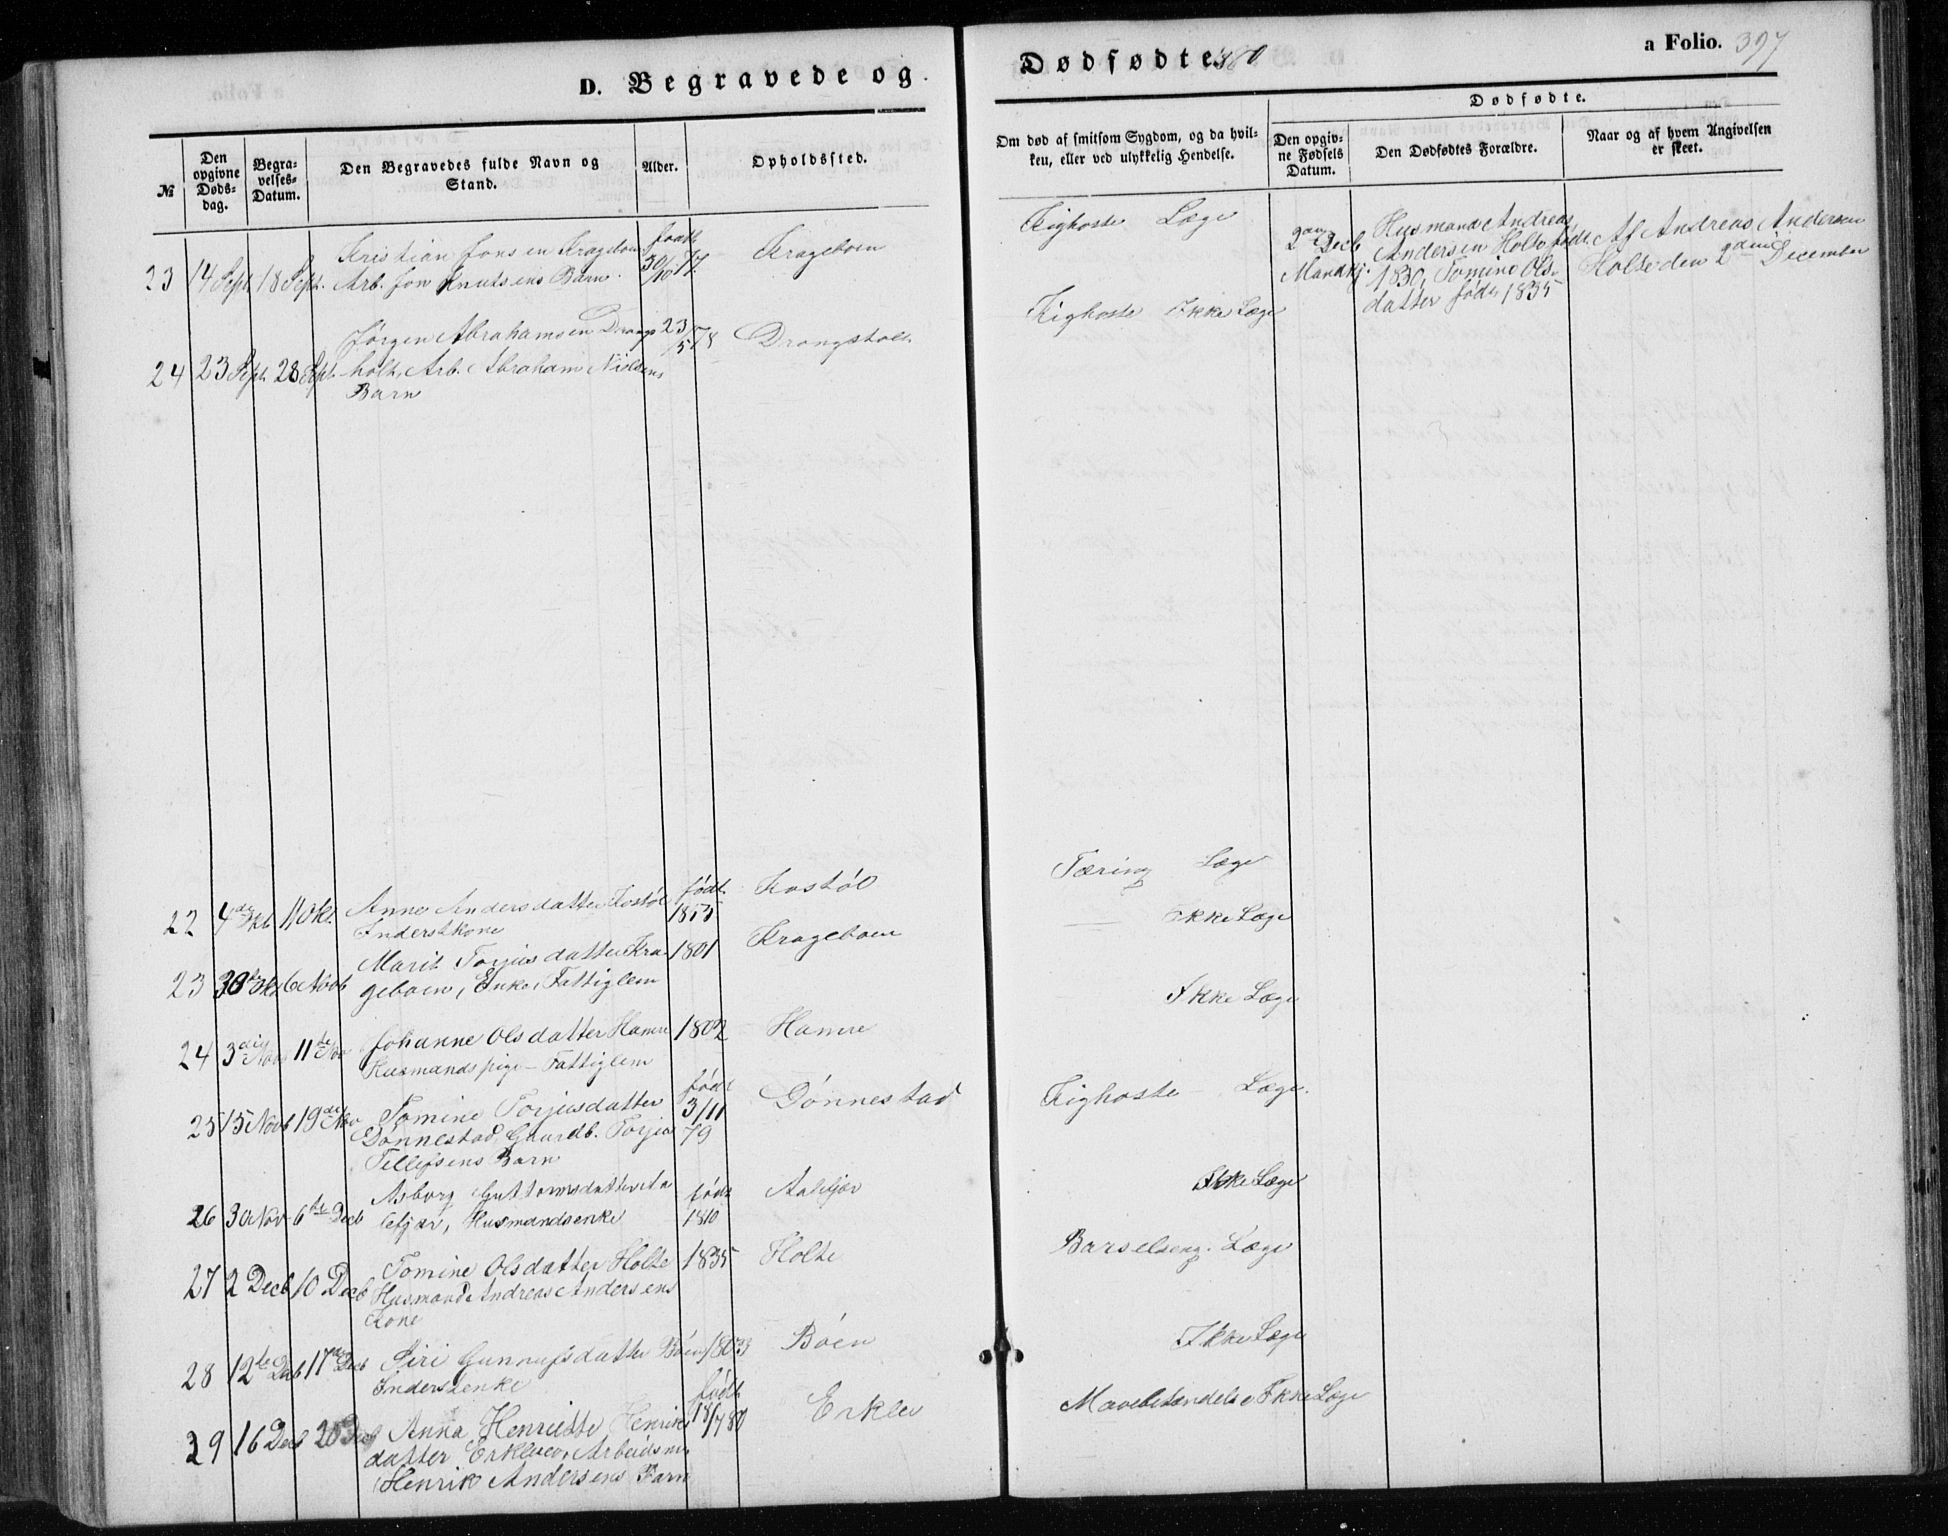 D. Begravede og
Dødfødte 1880
a Folio. 397
№
Den opgivne Døds-dag.
Begra-velses-Datum.
Den Begravedes fulde Navn og Stand.
Alder.
Opholdssted.
Om død af smitsom Sygdom, og da hvil-
ken, eller ved ulykkelig Hendelse.
Dødfødte.
Den opgiv-ne Fødsels Datum.
Den Dødfødtes Forældre.
Naar og af hvem Angivelsen er skeet.
23 14 Sept 18 Sept. Kristian Jonsen Krageboen født 30/10 77 Krageboen Kighoste Læge
Arb. Jon Knutsens Barn
2den Decb Mandkj.
Husmand Andreas
Andersen Holte født
1830, Tomine Ols-
datter født 1835
Af Andreas Andersen
Holte den 2den December
24 23 Sept. 28 Sept. Jørgen Abrahamsen Drangs- 23/5 78 Drangsholt Kighoste Ikke Læge
holt. Arb. Abraham Nielsens
Barn
22 4de Okt 11 Okt. Anne Andersdatter Kostøl født 1855 Kostøl Tæring Læge
Inderstkone
23 30te Okt 6 Novb Marit Torjusdatter Kra- 1801 Krageboen Ikke Læge
geboen, Enke, Fattiglem
24 3die Nov 11te Nov Johanne Olsdatter Hamre 1802 Hamre Ikke Læge
Husmandspige - Fattiglem
25 15 Novb 19de Nov Tomine Torjusdatter født 3/11 79 Dønnestad Kighoste - Læge.
Dønnestad, Gaardb. Torjus
Tellefsens Barn
26 30 Nov 6te Decb Asborg Guttormsdatter Aa- født 1810 Aalefjær Ikke Læge
lefjær, Husmandsenke
27 2 Decb 10 Decb Tomine Olsdatter Holte 1835 Holte Barselseng. Læge
Husmand Andreas Andersens
Kone
28 12te Decb 17de Decb Siri Gunnufsdatter Bøen 1803 Bøen Ikke Læge
Inderstenke
29 16 Decb Anna Henriette Henriks- født 18/7 80 Erklev Mavebetændelse Ikke Læge
datter Erklev, Arbeidsm.
Henrik Andersens Barn